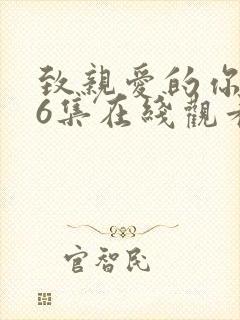 致親愛的你
6集在綫觀看
官智民